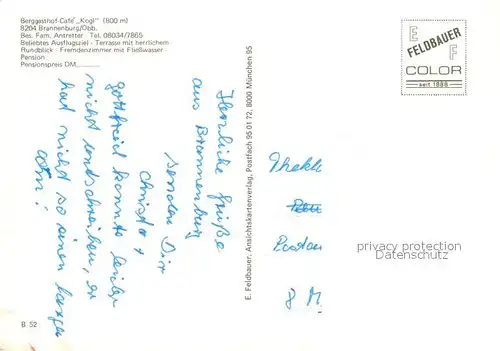 Berggasthof-Café „Kogl“ (800 m)
8204 Brannenburg/Obb.
Bes. Fam. Antretter · Tel. 08034/7865
Beliebtes Ausflugsziel - Terrasse mit herrlichem
Rundblick - Fremdenzimmer mit Fließwasser -
Pension
Pensionspreis DM
Herzliche Grüße
aus Brannenburg
senden Dir
Christa +
Gottfried konnte leider
nicht unterschreiben, er
hat nicht so einen langen
Arm!
B 52
E. Feldbauer, Ansichtskartenverlag, Postfach 95 01 72, 8000 München 95
E
FELDBAUER
F
COLOR
seit 1886
Thekl
Postan
8 M
privacy protection
Datenschutz